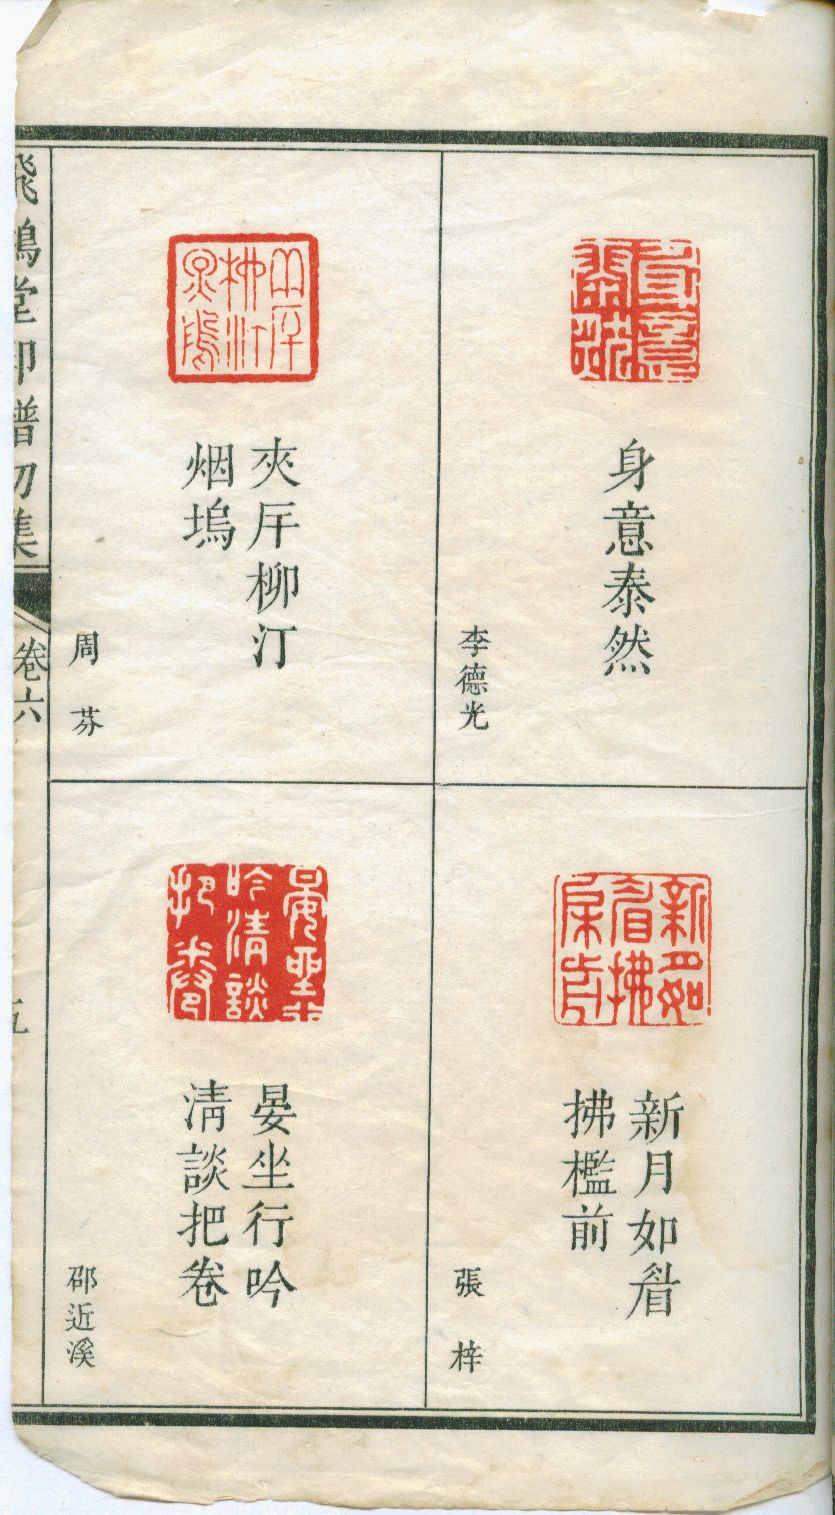 身意泰然
李德光
新月如眉
拂檻前
張梓
夾岸柳汀
烟塢
周芬
晏坐行吟
清談把卷
邵近溪
飛鴻堂印譜初集
卷六
五